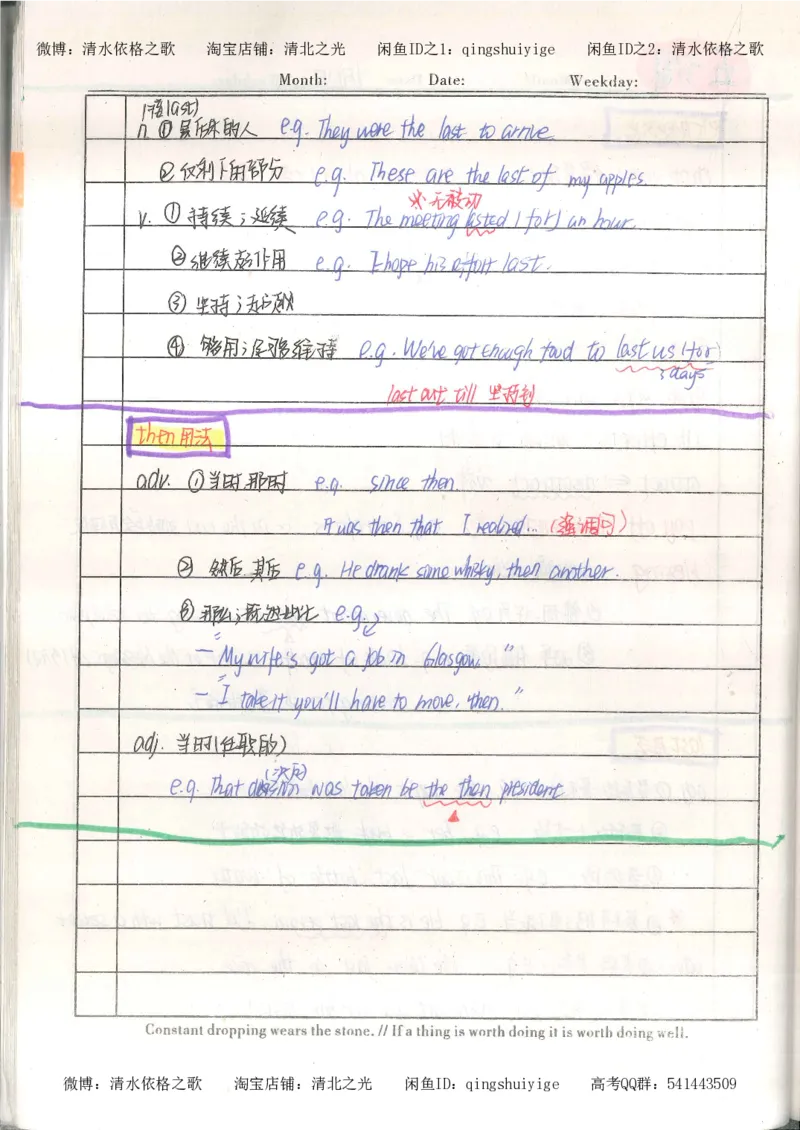 微博：清水依格之歌 淘宝店铺：清北之光 闲鱼ID之1：qingshuiyige 闲鱼ID之2：清水依格之歌
Month: Date: Weekday:
(接last)
n. ① 最后来的人 e.g. They were the last to arrive
② 仅剩下的部分 e.g. These are the last of my apples.
※无被动
v. ① 持续；延续 e.g. The meeting lasted (for) an hour.
② 继续起作用 e.g. I hope his effort last.
③ 坚持；
④ 够用；足够维持 e.g. We've got enough food to last us (for)
3 days
last out till 坚持到
then用法
adv. ①当时 那时 e.g. since then
It was then that I realized... (强调句)
② 然后 其后 e.g. He drank some whisky, then another.
③ 那么； e.g.
— "My wife's got a job in Glasgow."
— "I take it you'll have to move, then."
adj. 当时(任职的)
(决定)
e.g. That decision was taken be the then president
Constant dropping wears the stone. // If a thing is worth doing it is worth doing well.
微博：清水依格之歌 淘宝店铺：清北之光 闲鱼ID：qingshuiyige 高考QQ群：541443509